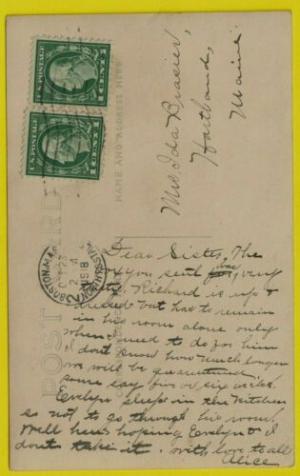 U.S. POSTAGE
1 CENT 1
U.S. POSTAGE
1 CENT 1
NAME AND ADDRESS HERE
POST
Mrs Ida Brasier,
Hartland,
Maine
BOSTON, MASS.
1918
Dear Sister, The
you sent was very
Richard is up &
dressed but has to remain
in his room alone only
when need to do for him
I dont know how much longer
we will be quarantined
some say five or six weeks.
Evelyn sleeps in the kitchen
so not to go through his room,
Well here's hoping Evelyn & I
dont take it. With love to all
Alice